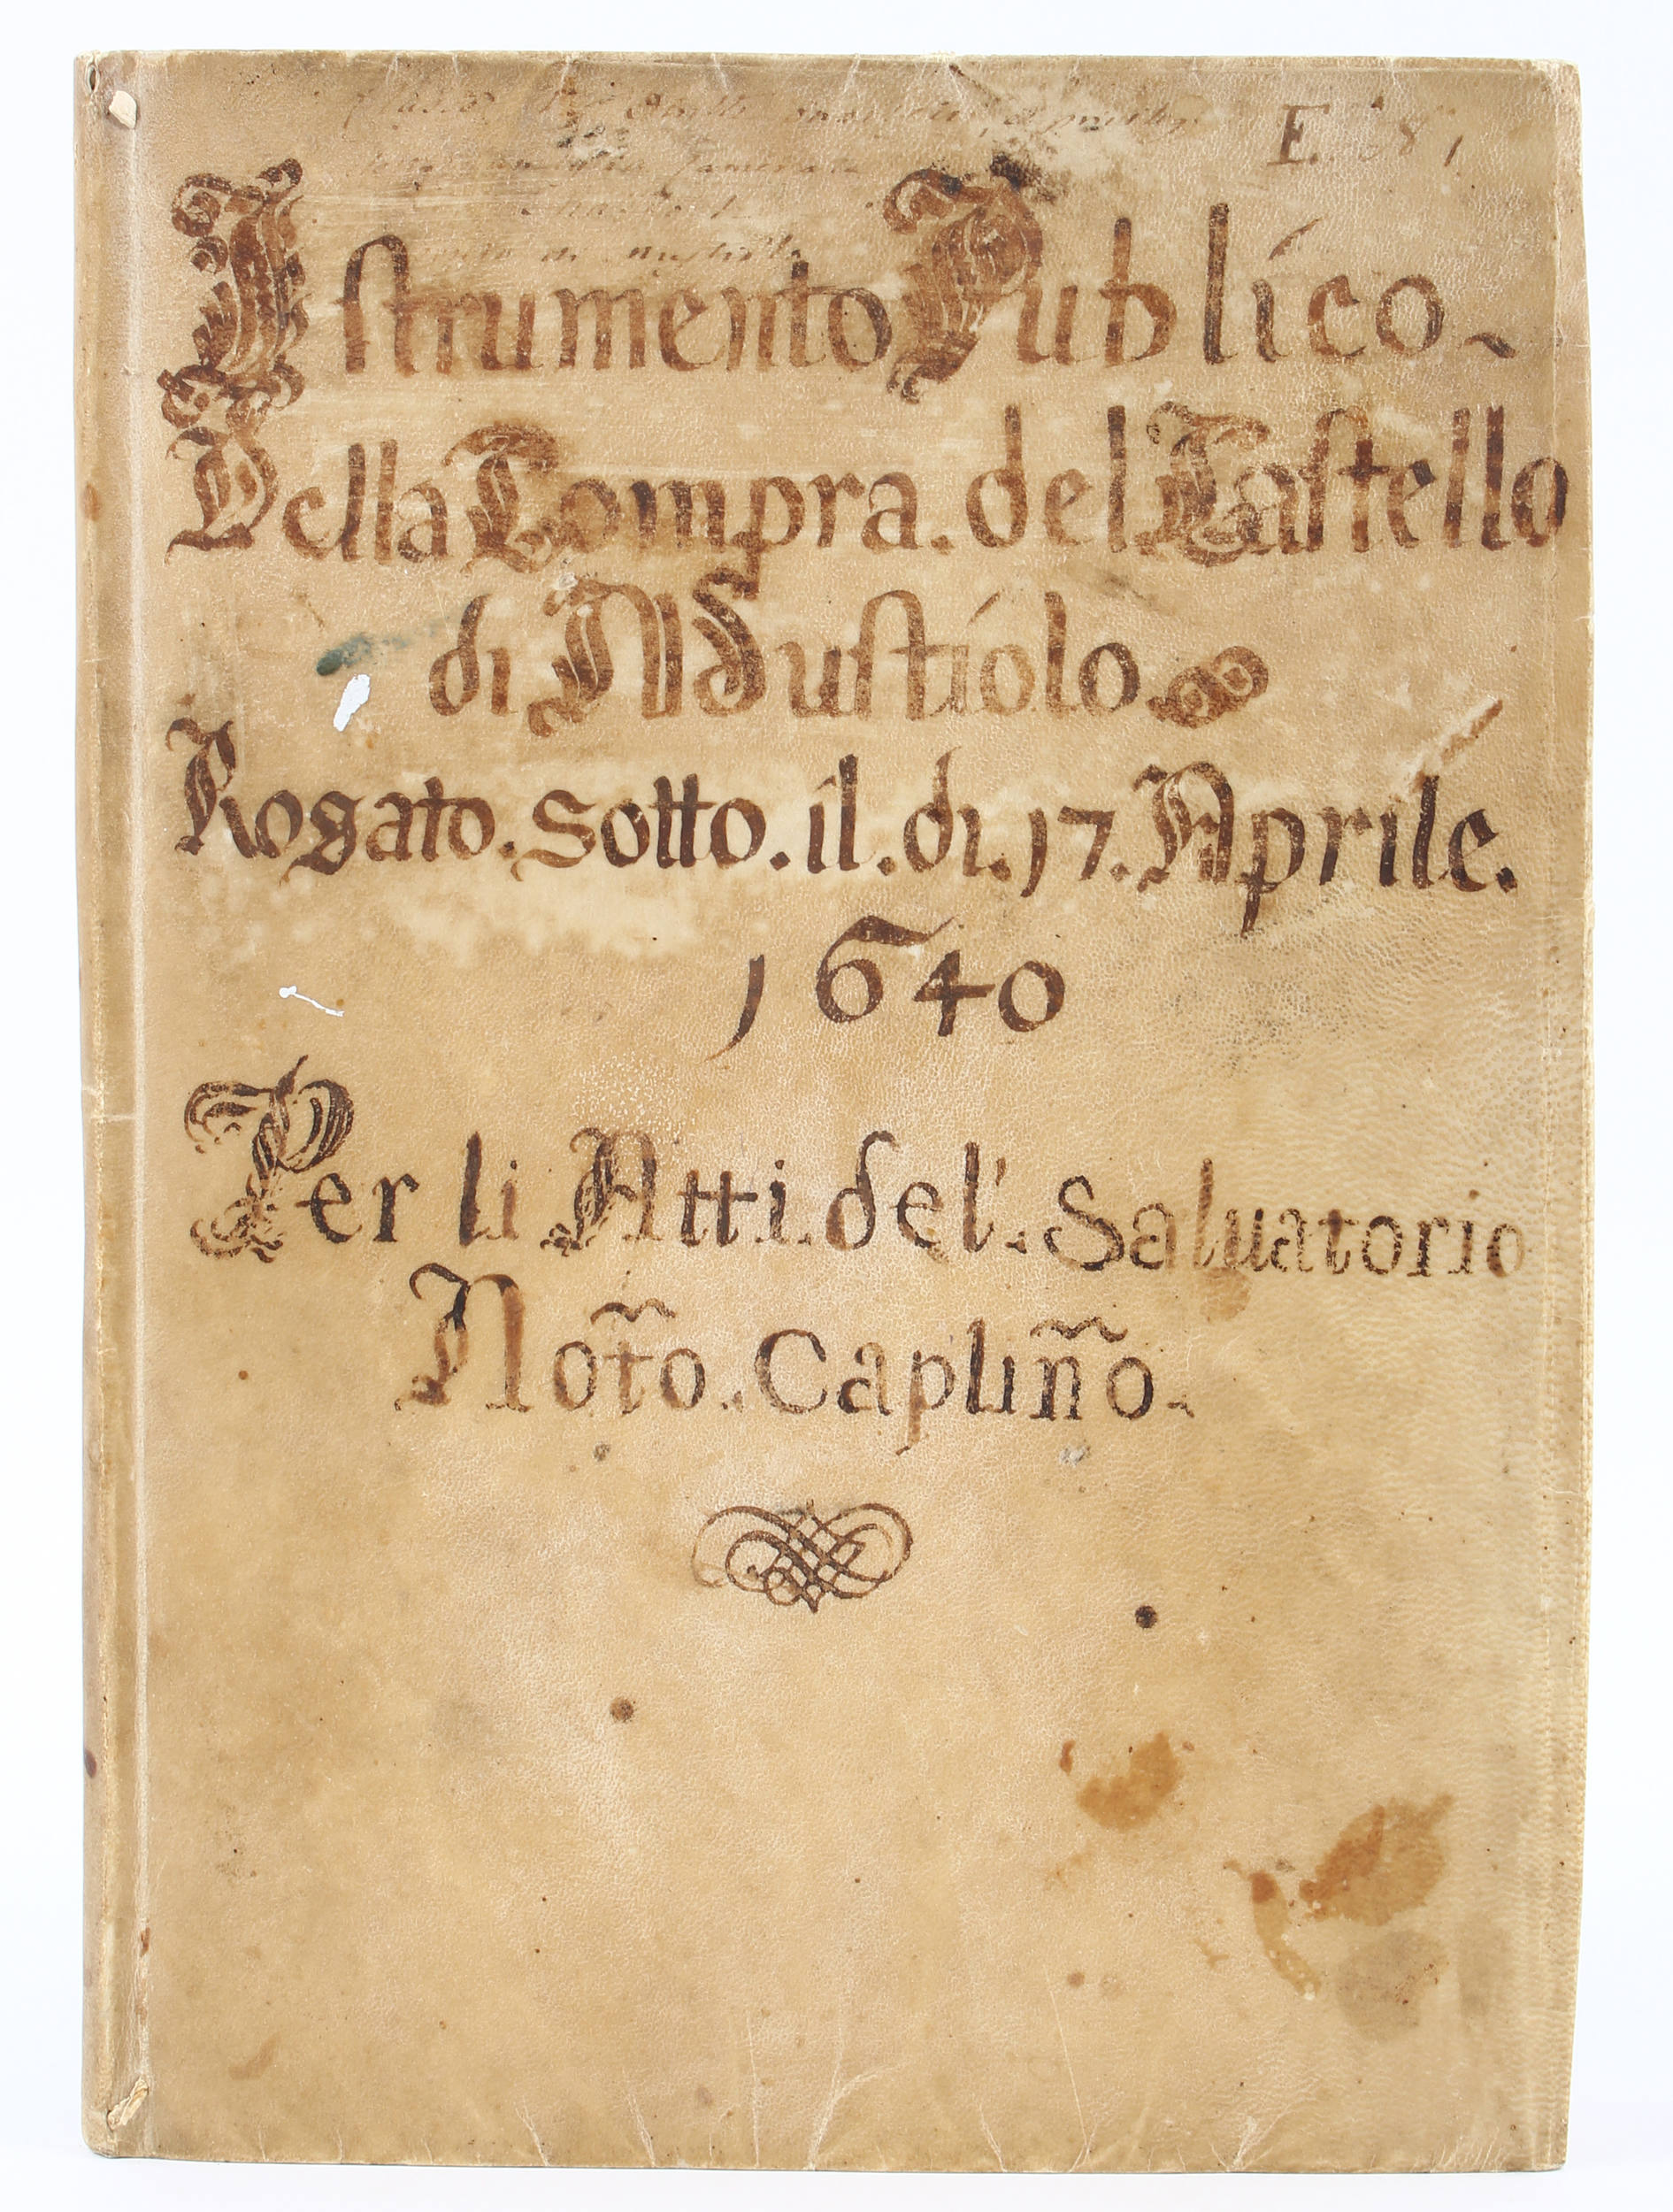 E.
Istrumento Publico
Della Compra. del Castello
di Mustiolo.
Rogato. sotto. il. di. 17. Aprile.
1640
Per li Atti. del'. Saluatorio
Not̃o. Capliño.